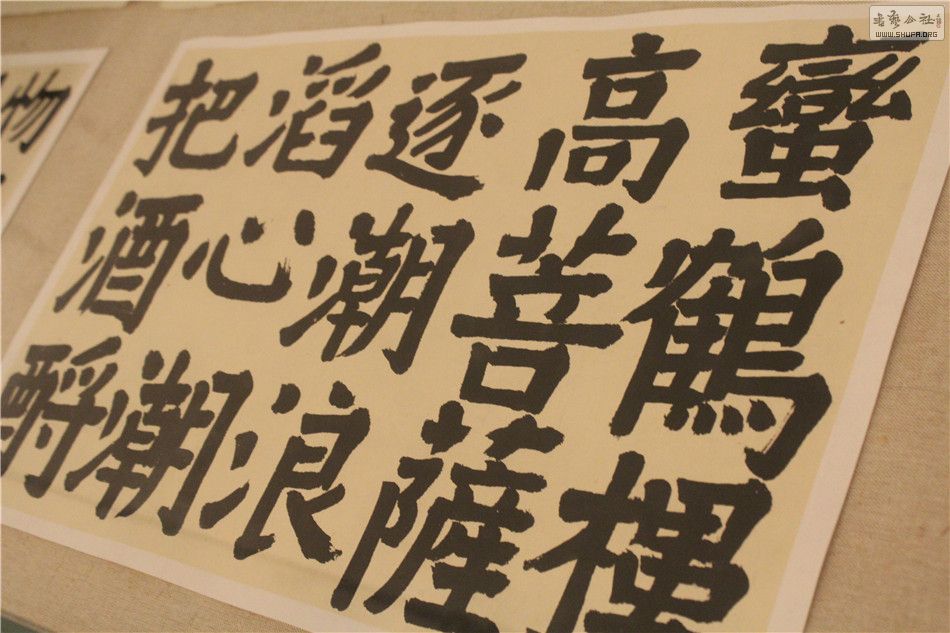 把酒酹
滔心潮
逐潮浪
高菩薩
蠻鶴樓
物
书艺公社
WWW.SHUFA.ORG